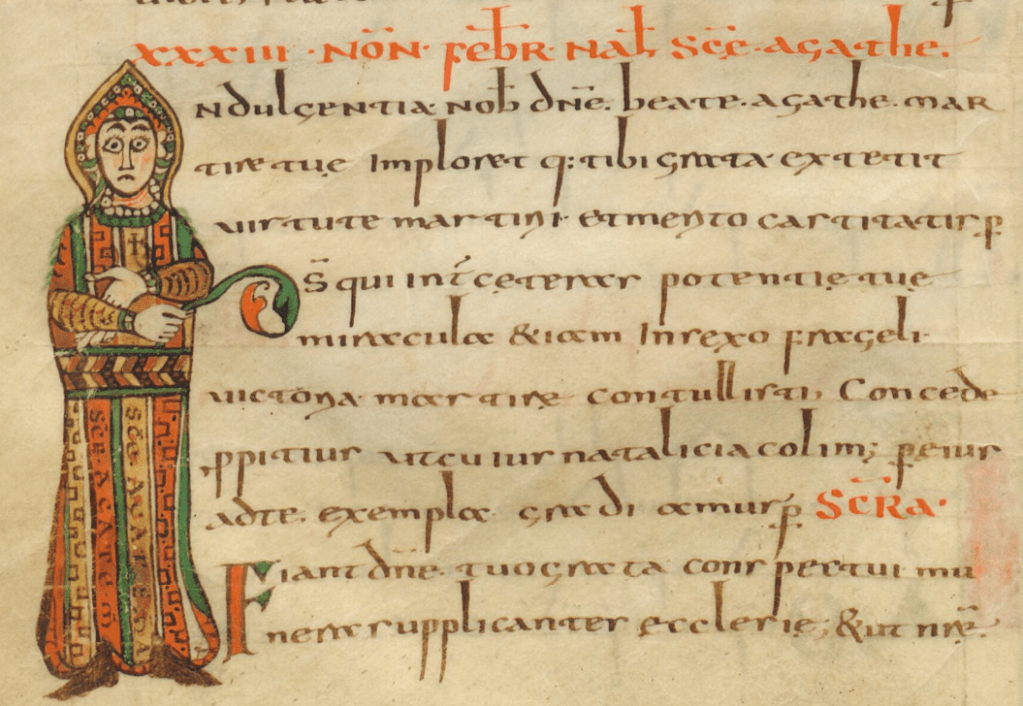 XXXIII · NON̄ · FEB̄R NAT̄ SC̄E · AGATHE.
NdulgENTIA· NOB̄ dn̄e. beate· agathe· mar
tirę tuę Imploret q: tibi grata· extetit
uirtute martirii· et merito castitatis p̄
D̄S qui int̄ cęteras potentię tuę
miracula &iam In sexo fragili·
uictoria· martirę contullisti, Concede
ppitius ut cuius natalicia colim; p̄ eius
adte· exempla gradiamur p̄ SC̄RA·
Fiant dn̄e· tuo grata conspectui mu
nera supplicantes ecclesię; & ut nrē.